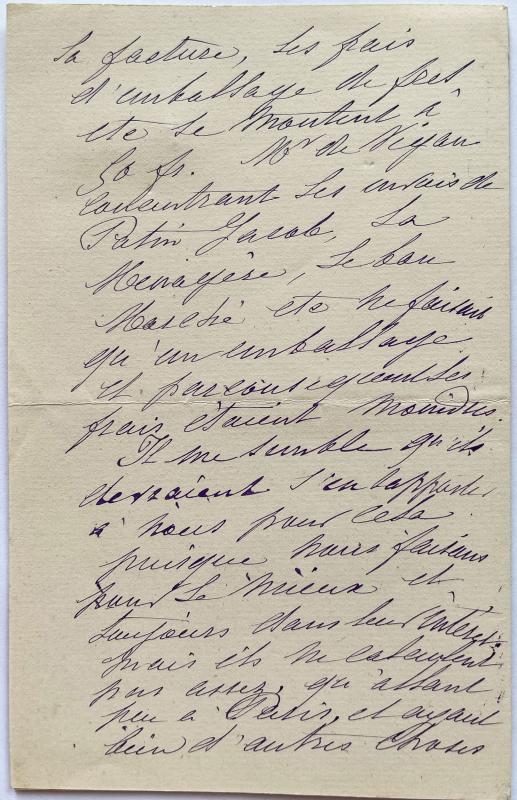 la facture, les frais
d'emballage de fret
etc se montent à
30 fr. Mr de Vigan
concentrant les envois de
Patin Jacob, La
Menagère, Le bon
Marché etc ne faisait
qu'un emballage
et par consequent les
frais étaient moindres.
Il me semble qu'ils
devraient s'en rapporter
à nous pour cela
puisque nous faisons
pour le mieux et
toujours dans leur intérêt
mais ils ne calculent
pas assez, qu'allant
peu à Paris, et ayant
bien d'autres choses